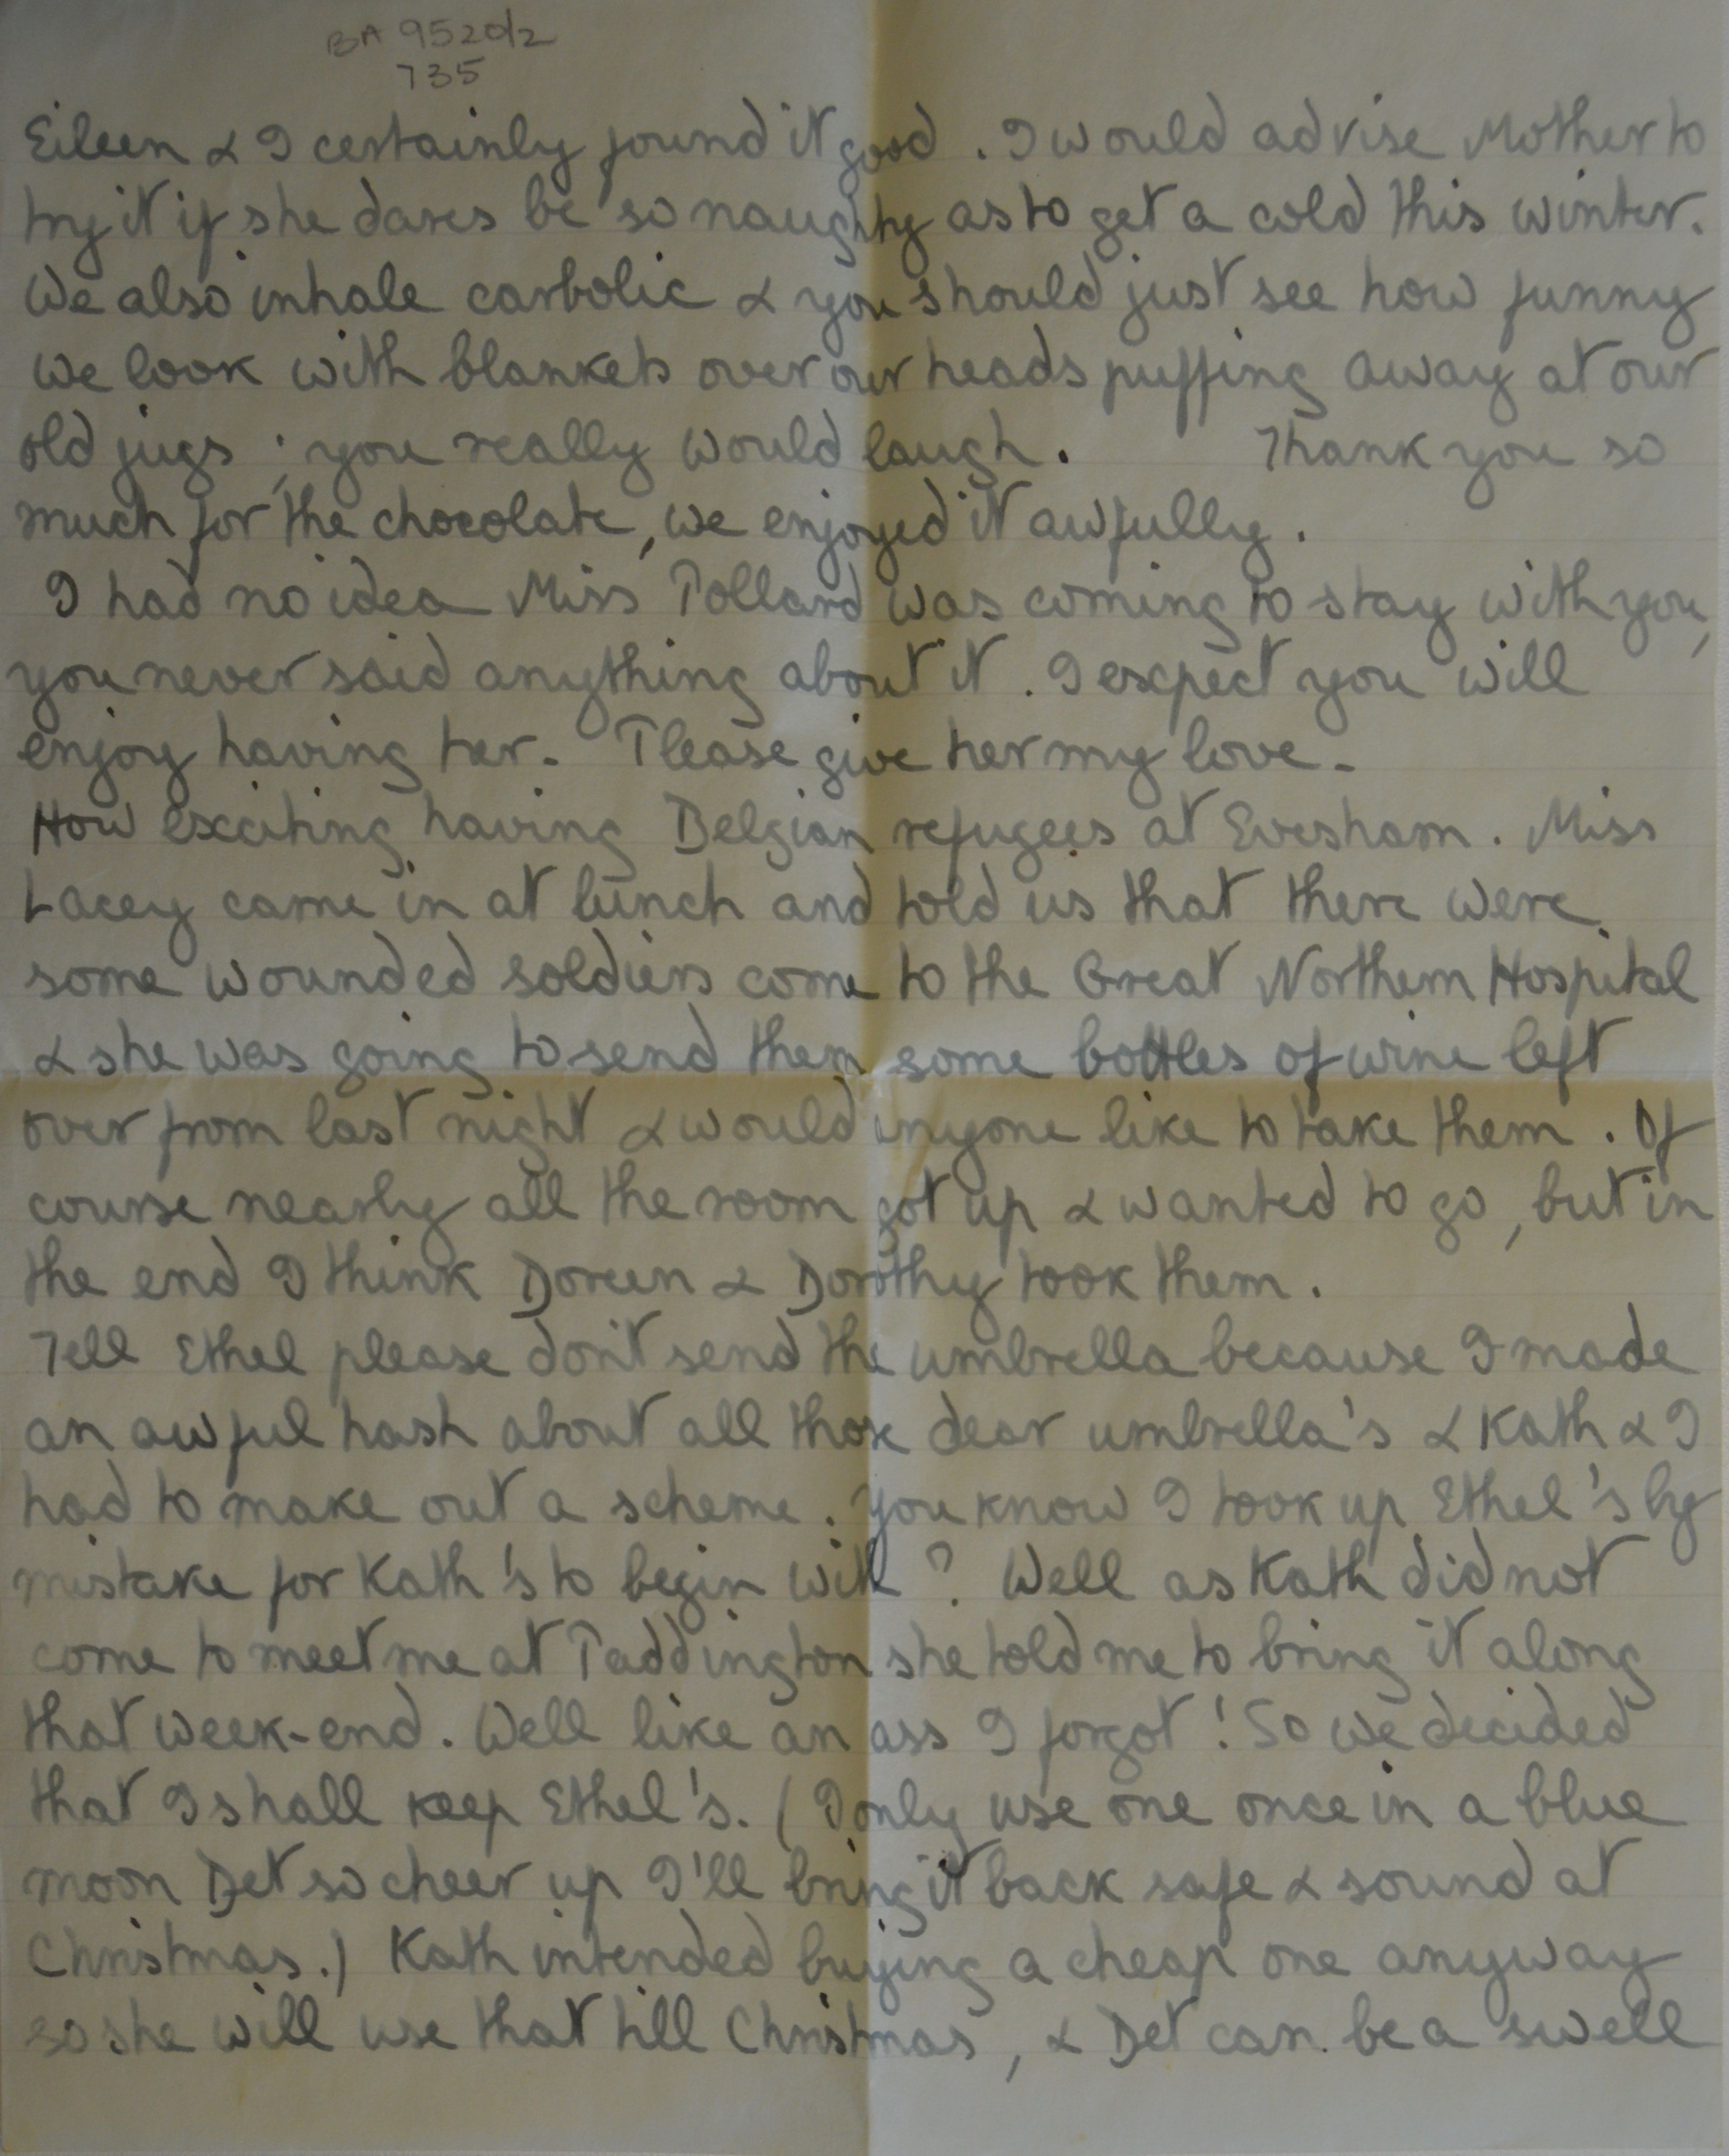 BA 9520/2
735
Eileen & I certainly found it good. I would advise Mother to
try it if she dares be so naughty as to get a cold this winter.
We also inhale carbolic & you should just see how funny
we look with blankets over our heads puffing away at our
old jugs; you really would laugh. Thank you so
much for the chocolate, we enjoyed it awfully.
I had no idea Miss Pollard was coming to stay with you,
you never said anything about it. I expect you will
enjoy having her. Please give her my love.
How exciting having Belgian refugees at Evesham. Miss
Lacey came in at lunch and told us that there were
some wounded soldiers come to the Great Northern Hospital
& she was going to send them some bottles of wine left
over from last night & would anyone like to take them. Of
course nearly all the room got up & wanted to go, but in
the end I think Doreen & Dorothy took them.
Tell Ethel please don't send the umbrella because I made
an awful hash about all those dear umbrella's & Kath & I
had to make out a scheme. You know I took up Ethel's by
mistake for Kath's to begin with? Well as Kath did not
come to meet me at Paddington she told me to bring it along
that week-end. Well like an ass I forgot! So we decided
that I shall keep Ethel's. (I only use one once in a blue
moon Det so cheer up I'll bring it back safe & sound at
Christmas.) Kath intended buying a cheap one anyway
so she will use that till Christmas, & Det can be a swell